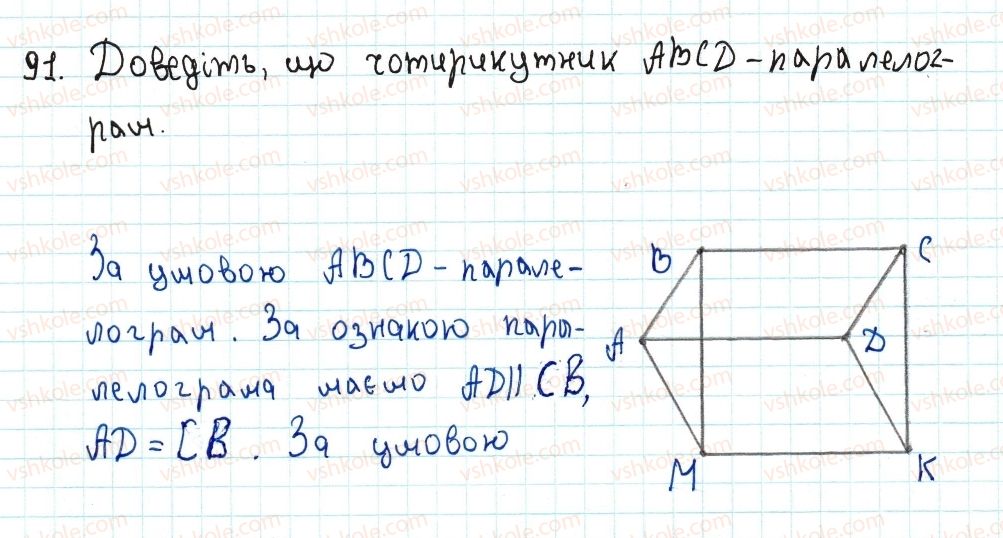 91. Доведіть, що чотирикутник ABCD - паралелог-
рам.
За умовою ABCD - парале-
лограм. За ознакою пара-
лелограма маємо AD || CB,
AD = CB. За умовою
B
C
A
D
M
K
vshkole.com